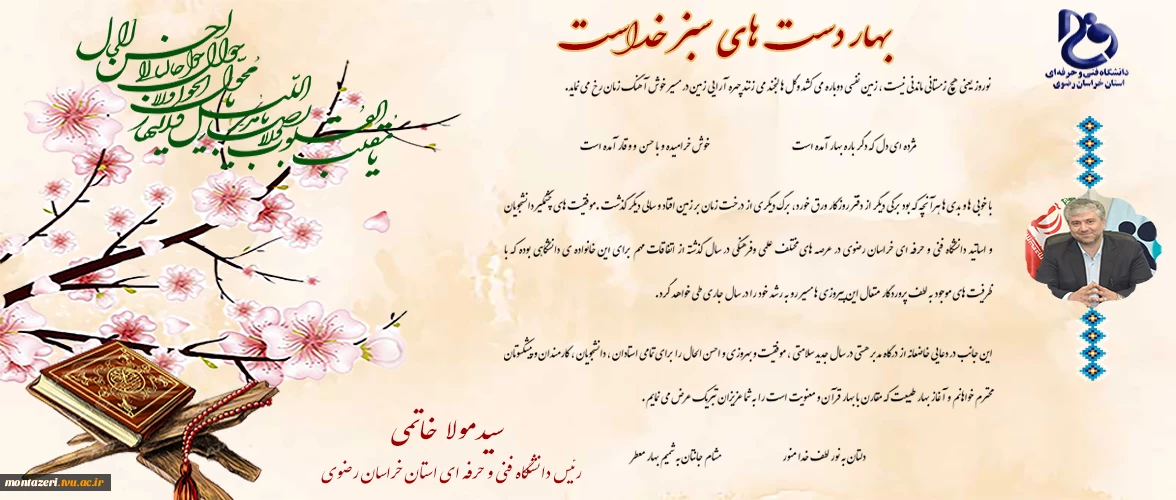 بهار دست های سبز خداست
دانشگاه فنی و حرفه‌ای
استان خراسان رضوی
نوروز یعنی هیچ زمستانی ماندنی نیست ، زمین نفسی دوباره می کشد و گل ها لبخند می زنند چهره آرایی زمین در مسیر خوش آهنگ زمان رخ می نماید.
مژده ای دل که دگر باره بهار آمده است
خوش خرامیده و با حسن و وقار آمده است
با خوبی ها و بدی ها هر آنچه که بود برگی دیگر از دفتر روزگار ورق خورد، برگ دیگری از درخت زمان بر زمین افتاد و سالی دیگر گذشت .موفقیت های چشمگیر دانشجویان
و اساتید دانشگاه فنی و حرفه ای خراسان رضوی در عرصه های مختلف علمی و فرهنگی در سال گذشته از اتفاقات مهم برای این خانواده ی دانشگاهی بوده که با
ظرفیت های موجود به لطف پروردگار متعال این پیروزی ها مسیر رو به رشد خود را در سال جاری طی خواهد کرد.
این جانب در دعایی خاضعانه از درگاه مدبر هستی در سال جدید سلامتی ، موفقیت و بهروزی و احسن الحال را برای تمامی استادان ، دانشجویان ، کارمندان و پیشکسوتان
محترم خواهانم و آغاز بهار طبیعت که مقارن با بهار قرآن و معنویت است را به شما عزیزان تبریک عرض می نمایم .
دلتان به نور لطف خدا منور
مشام جانتان به شمیم بهار معطر
سید مولا خاتمی
رئیس دانشگاه فنی و حرفه ای استان خراسان رضوی
یا مقلب القلوب و الابصار
یا مدبر اللیل و النهار
یا محول الحول و الاحوال
حول حالنا الی احسن الحال
montazeri.tvu.ac.ir